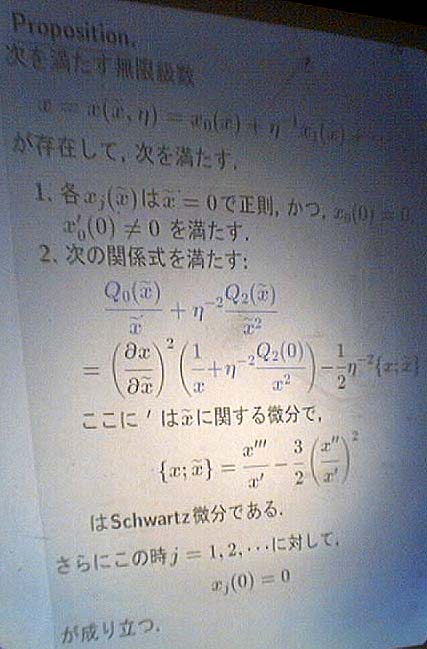 Proposition.
次を満たす無限級数
x = x(x̃, η) = x₀(x̃) + η⁻¹x₁(x̃) + ⋯
が存在して, 次を満たす.
1. 各 xⱼ(x̃) は x̃ = 0 で正則, かつ, x₀(0) = 0,
x₀′(0) ≠ 0 を満たす.
2. 次の関係式を満たす:
Q₀(x̃)/x̃ + η⁻² Q₂(x̃)/x̃²
= (∂x/∂x̃)² (1/x + η⁻² Q₂(0)/x²) − 1/2 η⁻²{x; x̃}
ここに ′ は x̃ に関する微分で,
{x; x̃} = x‴/x′ − 3/2 (x″/x′)²
はSchwartz微分である.
さらにこの時 j = 1, 2, ⋯ に対して,
xⱼ(0) = 0
が成り立つ.